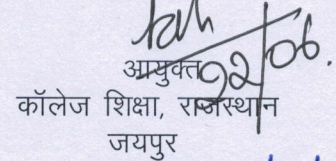 22/06.
आयुक्त
कॉलेज शिक्षा, राजस्थान
जयपुर